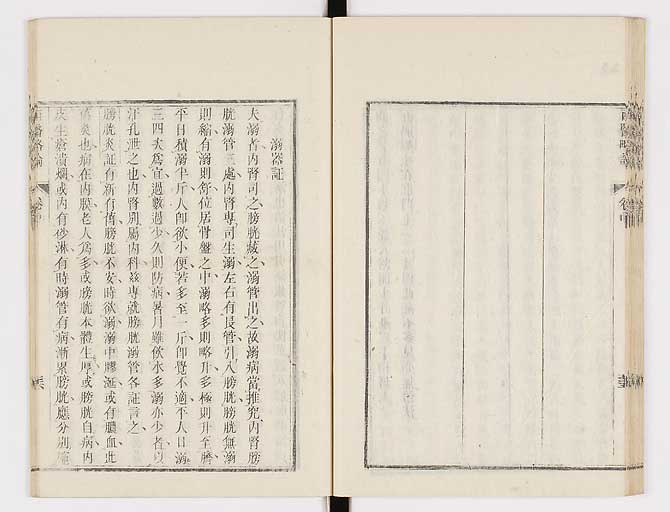 西醫略論 卷中
溺器証
夫溺者內腎司之膀胱藏之溺管出之故溺病當推究內腎膀
胱溺管三處內腎專司生溺左右有長管引入膀胱膀胱無溺
則縮有溺則舒位居骨盤之中溺略多則略升多極則升至臍
平日積溺半斤人卽欲小便若多至一斤卽覺不適平人日溺
三四次爲宜過數過少久則防病暑月雖飲水多溺亦少者以
汗孔泄之也內腎別屬內科茲專就膀胱溺管各証言之
膀胱炎証有新有舊膀胱不安時欲溺溺中膠涎或有膿血此
炎也病在內膜老人爲多或膀胱本體生厚或膀胱自病內
皮生瘡潰爛或內有砂淋有時溺管有病漸累膀胱應分別
西醫略論 卷中